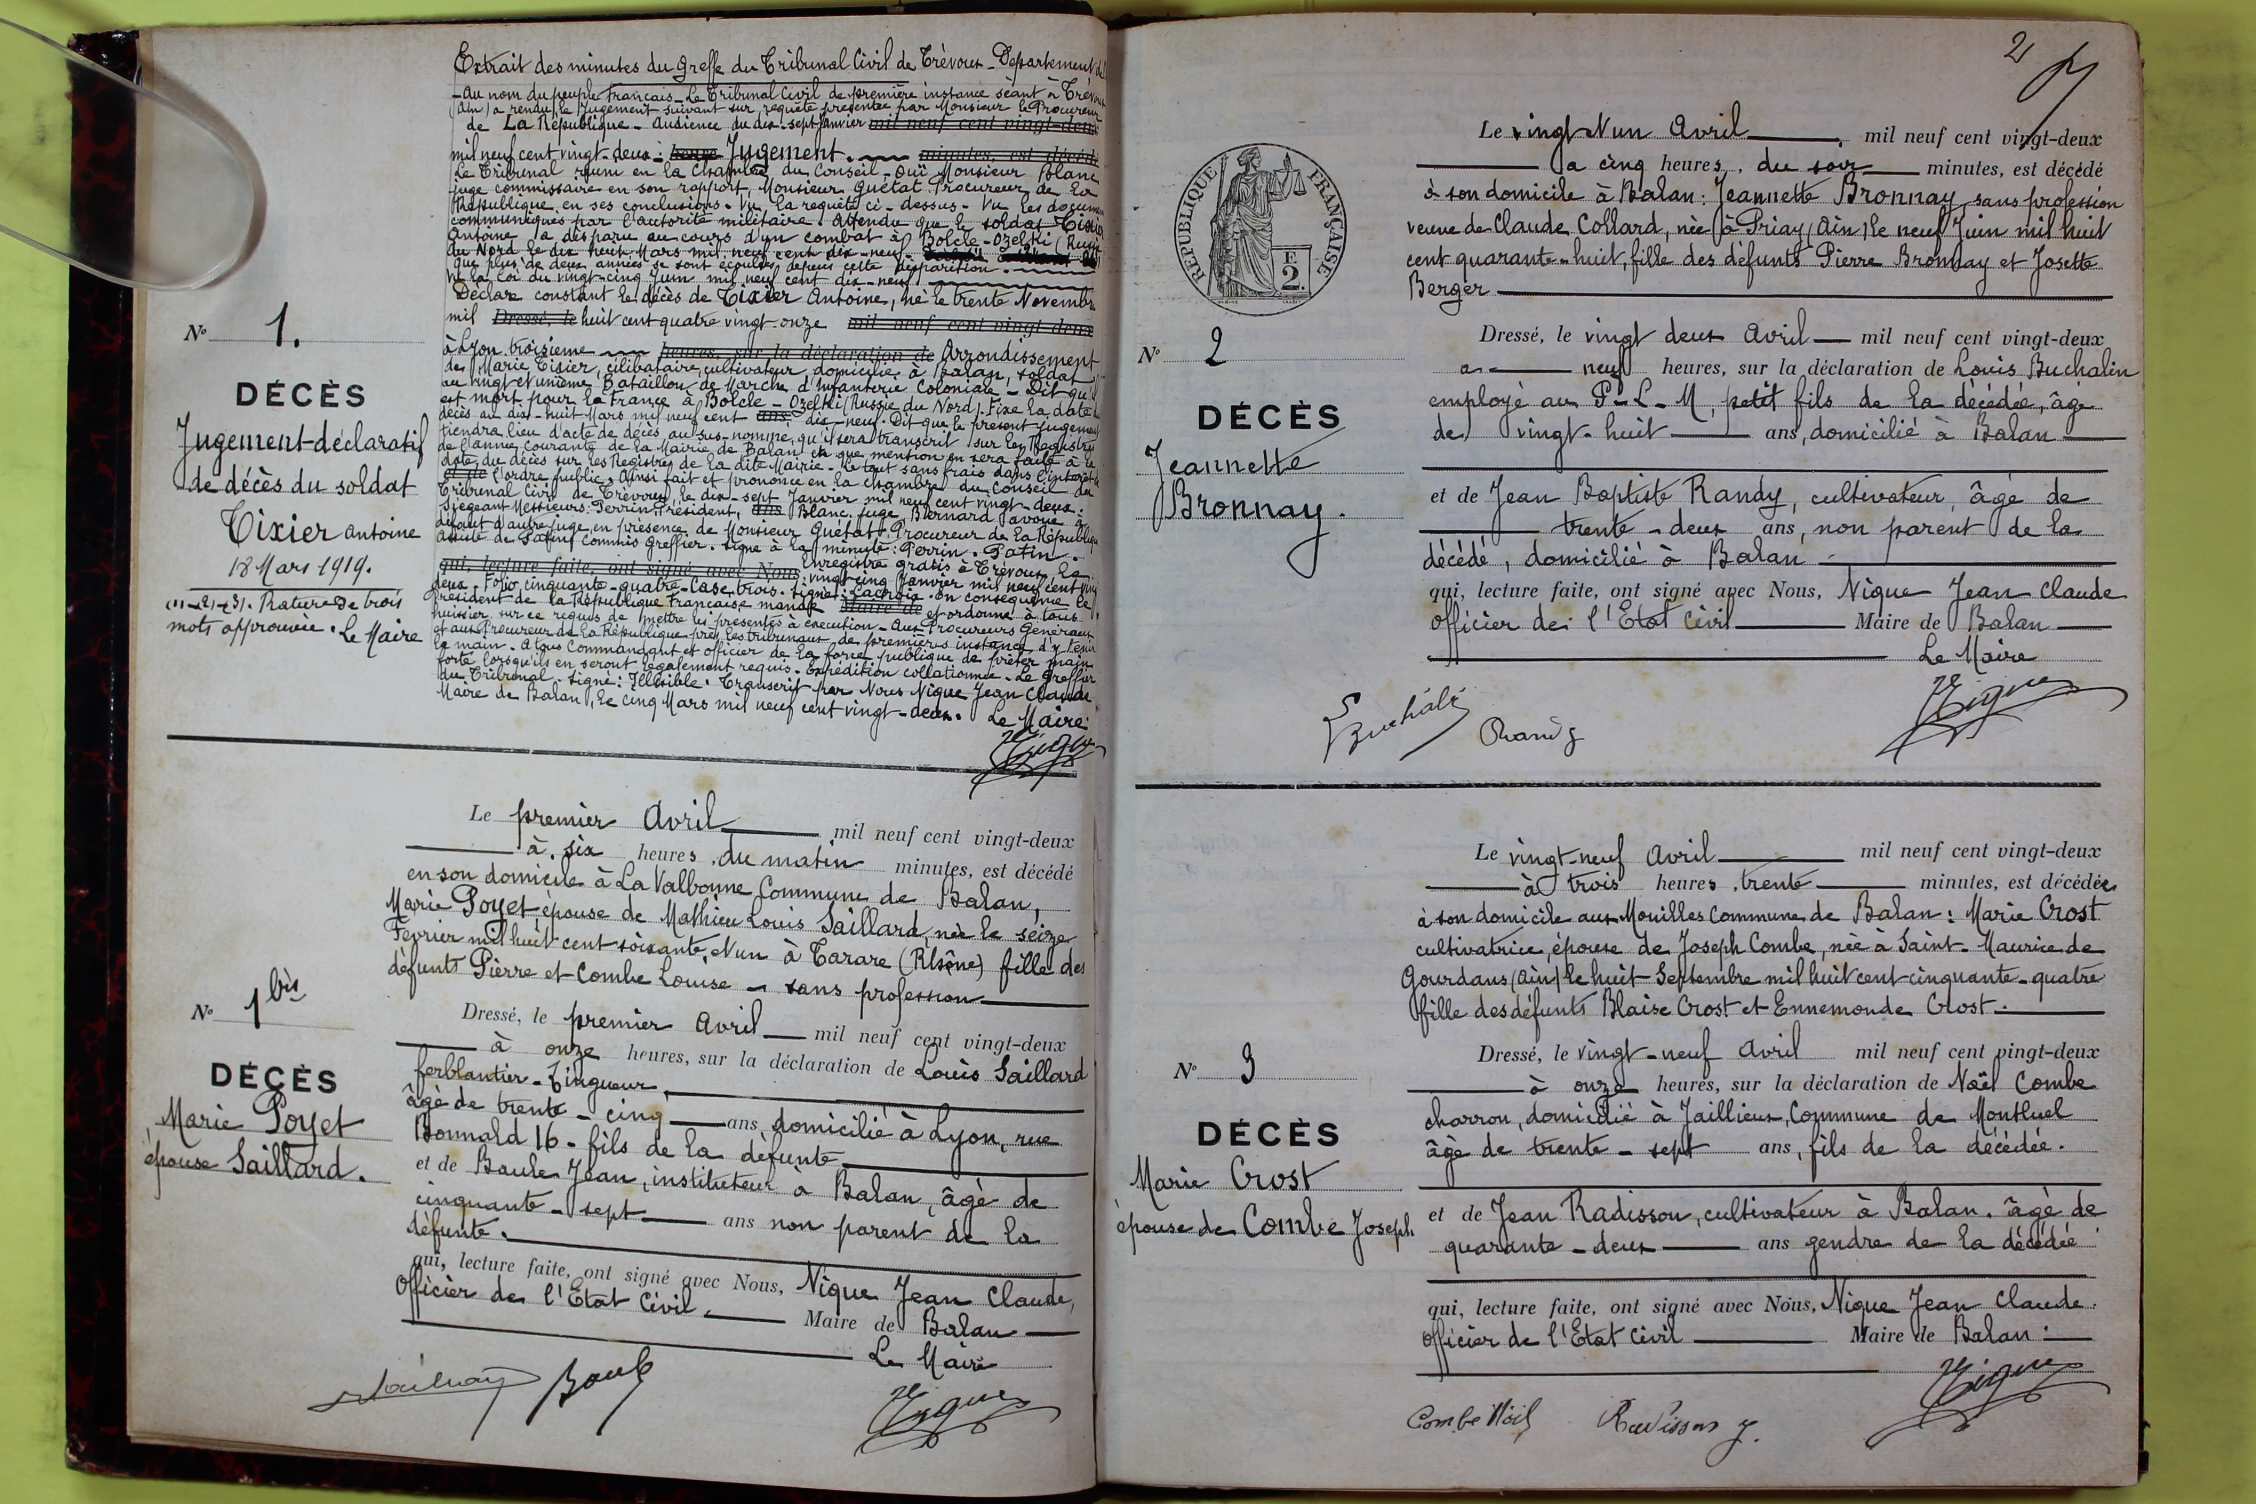 Extrait des minutes du Greffe du Tribunal Civil de Trévoux - Département de
- Au nom du peuple Français - Le Tribunal Civil de première instance séant à Trévoux
(Ain) a rendu le Jugement suivant sur requête présentée par Monsieur le Procureur
de La République - Audience du dix-sept Janvier mil neuf cent vingt-deux
mil neuf cent vingt-deux: heures Jugement. minutes, est décédé
Le Tribunal réuni en la Chambre du Conseil - Ouï Monsieur Blanc
juge commissaire en son rapport, Monsieur Quétat Procureur de La
République en ses conclusions - Vu la requête ci-dessus - Vu les documents
communiqués par l'autorité militaire. Attendu que le soldat Tixier
Antoine, a disparu au cours d'un combat à Bolcle-Ozelki (Russie
du Nord le dix huit Mars mil neuf cent dix-neuf.
que plus de deux années se sont écoulées depuis cette disparition.
Vu la Loi du vingt-cinq Juin mil neuf cent dix-neuf
Déclare constant le décès de Tixier Antoine, né le trente Novembre
mil Dressé, le huit cent quatre vingt-onze mil neuf cent vingt-deux
à Lyon troisième heures, sur la déclaration de Arrondissement
de Marie Tixier, célibataire, cultivateur, domicilié à Balan, soldat
au vingt et unième Bataillon de Marche d'Infanterie Coloniale - Dit qu'il
est mort pour la France à Bolcle-Ozelki (Russie du Nord). Fixe la date du
décès au dix-huit Mars mil neuf cent ans, dix-neuf. Dit que le présent jugement
tiendra lieu d'acte de décès au sus-nommé, qu'il sera transcrit sur les Registres
de l'année courante de la Mairie de Balan et que mention en sera faite à la
date du décès sur les Registres de la dite Mairie - Le tout sans frais dans l'intérêt
et de l'ordre public - Ainsi fait et prononcé en la chambre du Conseil du
Tribunal Civil de Trévoux, le dix-sept Janvier mil neuf cent vingt-deux:
Siégeant Messieurs: Perrin, Président, ans Blanc, juge Bernard avoué
défaut d'autre juge, en présence de Monsieur Quétat, Procureur de la République
assisté de Patin Commis Greffier. Signé à la minute: Perrin. Patin.
qui, lecture faite, ont signé avec Nous Enregistré gratis à Trévoux, le
vingt-cinq Janvier mil neuf cent vingt
deux. Folio cinquante-quatre - Case trois. Signé: Lacroix. En conséquence le
Président de la République Française mande Maire de et ordonne à tous
huissier sur ce requis de mettre les présentes à exécution - Aux Procureurs Généraux
et aux Procureurs de la République près les tribunaux de premières instance d'y tenir
la main. A tous Commandant et officier de la force publique de prêter main
forte lorsqu'ils en seront légalement requis. Expédition collationnée - Le Greffier
du Tribunal. Signé: Illisible. Transcrit par Nous Nique Jean Claude
Maire de Balan, le cinq Mars mil neuf cent vingt-deux. Le Maire:
Nique
No 1.
DÉCÈS
Jugement-déclaratif
de décès du soldat
Tixier Antoine
18 Mars 1919.
(1)-(2)-(3). Rature de trois
mots approuvée. Le Maire
Le premier Avril mil neuf cent vingt-deux
à six heures du matin minutes, est décédé
en son domicile à La Valbonne Commune de Balan,
Marie Poyet, épouse de Mathieu Louis Saillard, née le seize
Février mil huit cent soixante et un à Tarare (Rhône) fille des
défunts Pierre et Combe Louise - sans profession
Dressé, le premier Avril mil neuf cent vingt-deux
à onze heures, sur la déclaration de Louis Saillard
ferblantier-Zingueur,
âgé de trente-cinq ans, domicilié à Lyon, rue
Bonnald 16 - fils de la défunte
et de Baule Jean, instituteur à Balan, âgé de
cinquante-sept ans non parent de la
défunte.
qui, lecture faite, ont signé avec Nous, Nique Jean Claude,
Officier de l'Etat Civil Maire de Balan
Le Maire
Baule
Nique
No 1 bis
DÉCÈS
Marie Poyet
épouse Saillard.
2
RÉPUBLIQUE FRANÇAISE
F.
2.
Le vingt et un Avril mil neuf cent vingt-deux
à cinq heures, du soir minutes, est décédé
à son domicile à Balan: Jeannette Bronnay, sans profession
veuve de Claude Collard, née à Priay (Ain) le neuf Juin mil huit
cent quarante-huit, fille des défunts Pierre Bronnay et Josette
Berger
Dressé, le vingt deux Avril mil neuf cent vingt-deux
a neuf heures, sur la déclaration de Louis Buchalin
employé au P-L-M, petit fils de la décédée, âgé
de vingt-huit ans, domicilié à Balan
et de Jean Baptiste Randy, cultivateur, âgé de
trente-deux ans, non parent de la
décédé, domicilié à Balan
qui, lecture faite, ont signé avec Nous, Nique Jean Claude
Officier de l'Etat Civil Maire de Balan
Le Maire
Randy
Nique
No 2
DÉCÈS
Jeannette
Bronnay.
Le vingt-neuf Avril mil neuf cent vingt-deux
à trois heures, trente minutes, est décédée
à son domicile aux Mouilles Commune de Balan: Marie Crost
cultivatrice, épouse de Joseph Combe, née à Saint-Maurice de
Gourdans (Ain) le huit Septembre mil huit cent cinquante-quatre
fille des défunts Blaise Crost et Ennemonde Crost.
Dressé, le vingt-neuf Avril mil neuf cent vingt-deux
à onze heures, sur la déclaration de Noël Combe
charron, domicilié à Jaillieux, Commune de Montluel
âgé de trente-sept ans, fils de la décédée.
et de Jean Radisson, cultivateur à Balan. âgé de
quarante-deux ans gendre de la décédée
qui, lecture faite, ont signé avec Nous, Nique Jean Claude.
Officier de l'Etat Civil Maire de Balan:
Combe Noël Radisson J.
Nique
No 3
DÉCÈS
Marie Crost
épouse de Combe Joseph